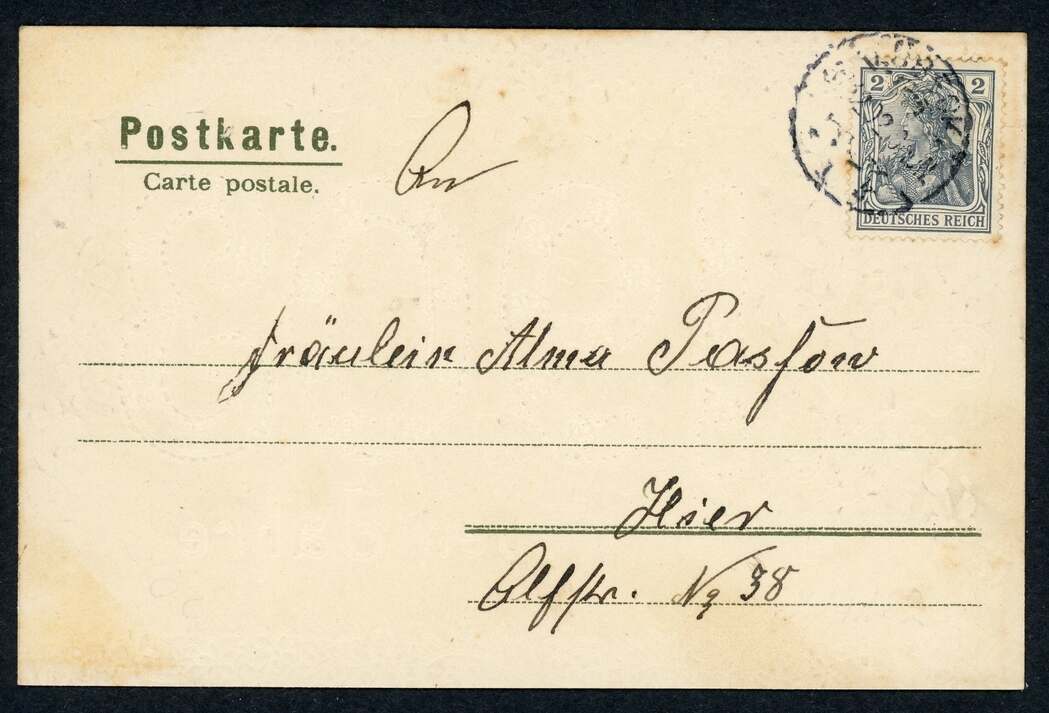 Postkarte.
Carte postale.
An
2 2
DEUTSCHES REICH
Fräulein Alma Passow
Hier
Alfstr. No 38